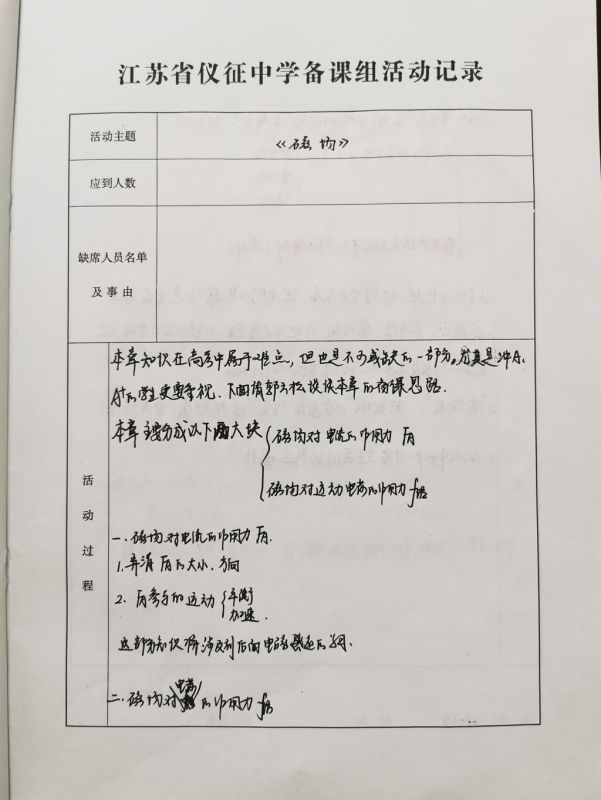 江苏省仪征中学备课组活动记录
活动主题
《磁场》
应到人数
缺席人员名单
及事由
活动过程
本章知识在高考中属于难点，但也是不可或缺的一部分，尤其是冲A，
A+的学生更要重视，下面有郭松谈谈本章的备课思路
本章主要分成以下两大块
磁场对电流的作用力 F安
磁场对运动电荷的作用力 f洛
一. 磁场对电流的作用力 F安
1. 弄清 F安的大小、方向
2. F安参与的运动
平衡
加速
这部分知识将涉及到后面电磁感应的
二. 磁场对电荷的作用力 f洛